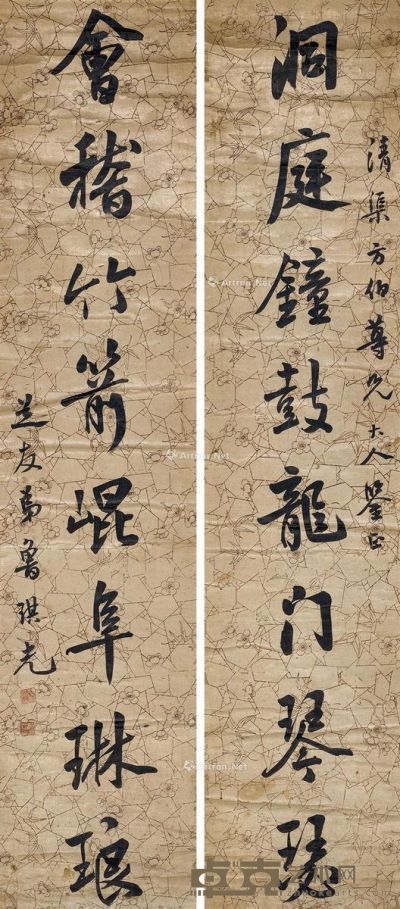 清渠方伯尊兄大人鉴正
洞庭鐘鼓龍门琴瑟
會稽竹箭崐阜琳琅
芝友弟魯琪光
Artron.Net
Artron.Net
Artron.Net
Artron.Net